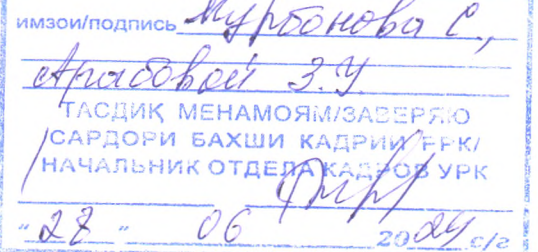 имзои/подпись Курбонова С,
Арабовой З.У.
ТАСДИҚ МЕНАМОЯМ/ЗАВЕРЯЮ
САРДОРИ БАХШИ КАДРИИ РРК/
НАЧАЛЬНИК ОТДЕЛА КАДРОВ УРК
"28" 06 2024 с/г